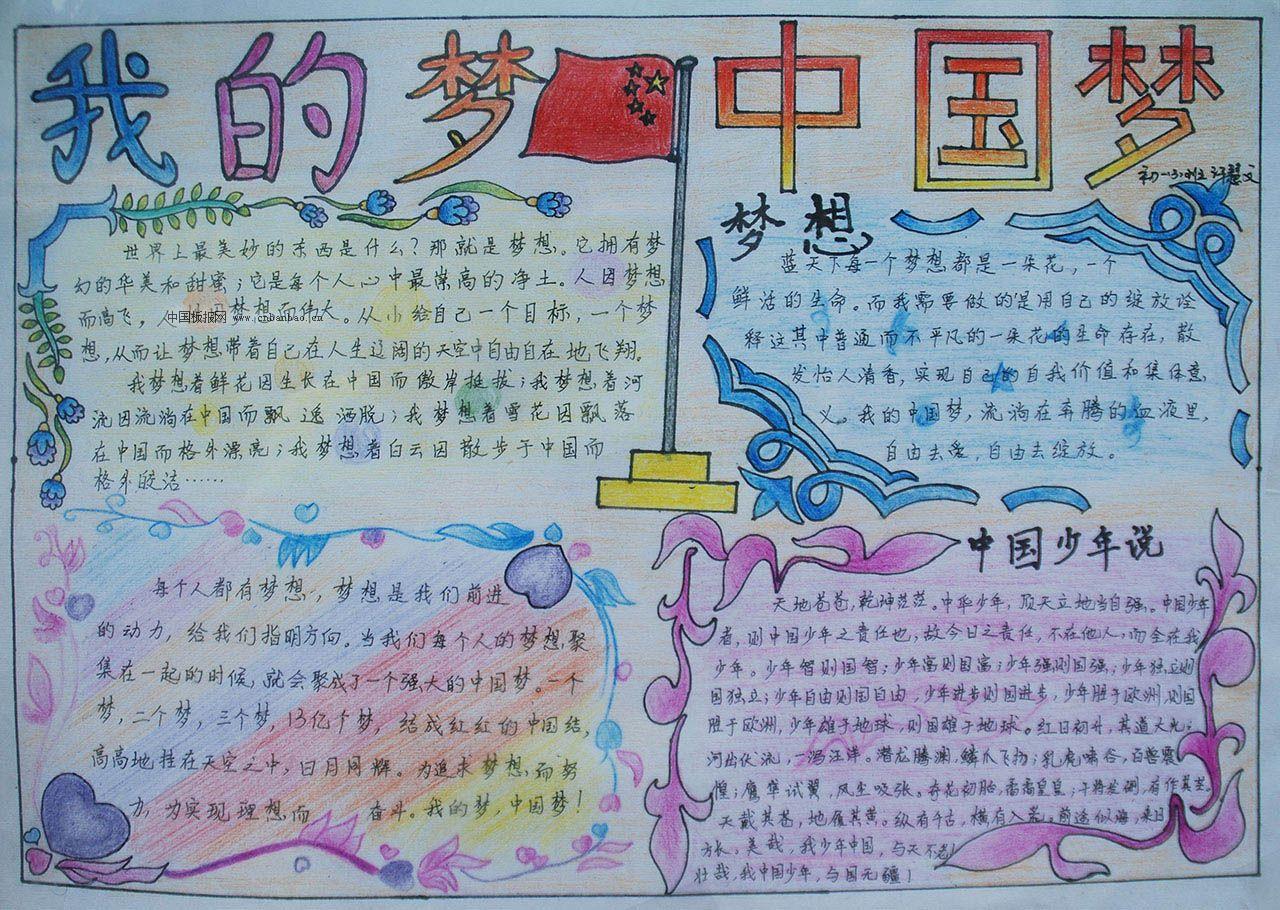 我的梦 中国梦
初一(3)班 许慧文
世界上最美妙的东西是什么?那就是梦想。它拥有梦
幻的华美和甜蜜;它是每个人心中最崇高的净土。人因梦想
而高飞,人因梦想而伟大。从小给自己一个目标,一个梦
中国板报网 www.cnbanbao.cn
想,从而让梦想带着自己在人生辽阔的天空中自由自在地飞翔。
我梦想着鲜花因生长在中国而傲岸挺拔;我梦想着河
流因流淌在中国而飘逸洒脱;我梦想着雪花因飘落
在中国而格外漂亮;我梦想着白云因散步于中国而
格外皎洁……
梦想
蓝天下每一个梦想都是一朵花,一个
鲜活的生命。而我需要做的是用自己的绽放诠
释这其中普通而不平凡的一朵花的生命存在,散
发怡人清香,实现自己的自我价值和集体意
义。我的中国梦,流淌在奔腾的血液里,
自由去爱,自由去绽放。
每个人都有梦想,梦想是我们前进
的动力,给我们指明方向。当我们每个人的梦想聚
集在一起的时候,就会聚成了一个强大的中国梦。一个
梦,二个梦,三个梦,13亿个梦,结成红红的中国结,
高高地挂在天空之中,日月同辉。为追求梦想而努
力,为实现理想而奋斗。我的梦,中国梦!
中国少年说
天地苍苍,乾坤茫茫。中华少年,顶天立地当自强。中国少年
者,则中国少年之责任也;故今日之责任,不在他人,而全在我
少年。少年智则国智;少年富则国富;少年强则国强;少年独立则
国独立;少年自由则国自由,少年进步则国进步,少年胜于欧洲,则国
胜于欧洲,少年雄于地球,则国雄于地球。红日初升,其道大光;
河出伏流,一泻汪洋。潜龙腾渊,鳞爪飞扬;乳虎啸谷,百兽震
惶;鹰隼试翼,风尘吸张。奇花初胎,矞矞皇皇;干将发硎,有作其芒。
天戴其苍,地履其黄。纵有千古,横有八荒。前途似海,来日
方长,美哉,我少年中国,与天不老!
壮哉,我中国少年,与国无疆!